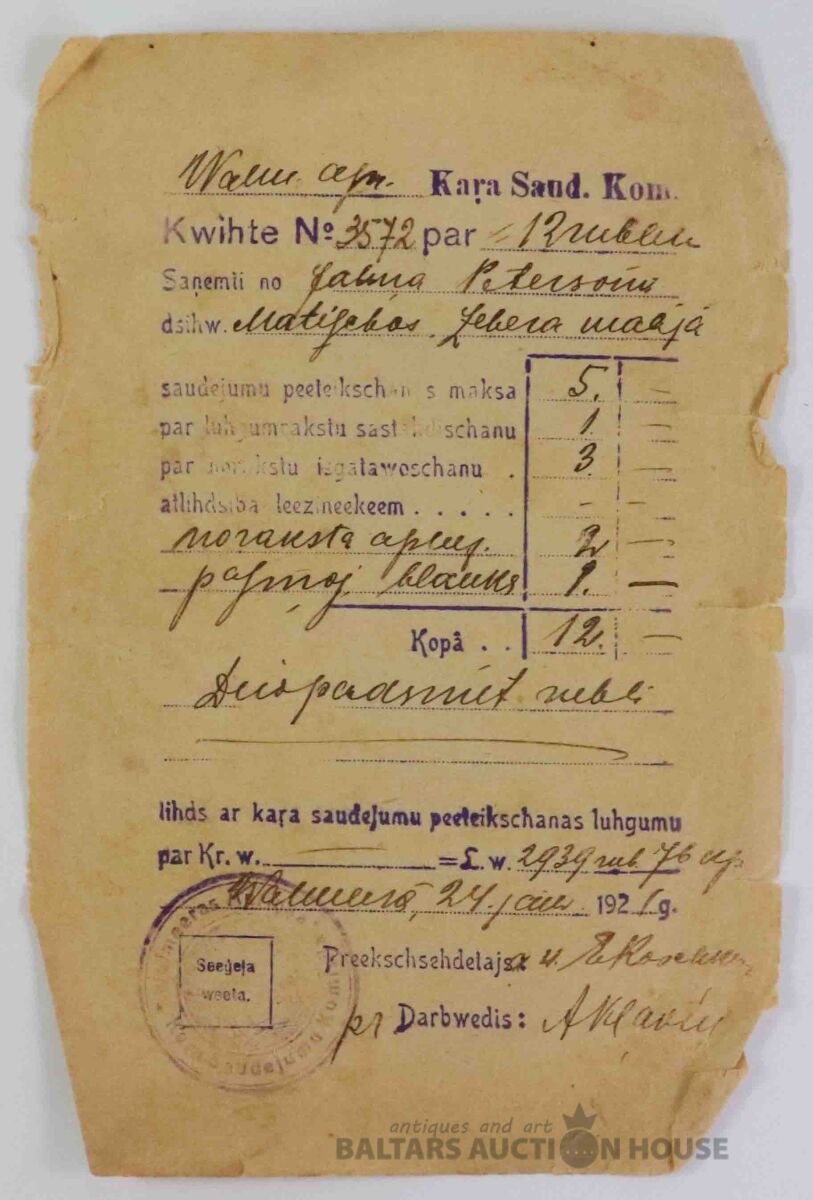 Walm. apr. Kaŗa Saud. Kom.
Kwihte № 3572 par = 12 rubļu
Saņemti no Jahņa Petersona
dsihw. Matīschos, Zebera mahjā
saudejumu peeteikschanas maksa 5. —
par luhgumrakstu sastahdischanu 1. —
par norakstu isgatawoschanu . 3. —
atlihdsiba leezineekeem . . . . . - -
noraksta apleez. 2 —
blanks 1. —
Kopâ . . 12. —
Diwpadsmit rubli
lihds ar kaŗa saudejumu peeteikschanas luhgumu
par Kr. w. — = L. w. 2939 rub. 76 ap
Walmeerā, 24. janv. 1921 g.
Seeģeļa
weeta.
Preekschsehdetajs:
pr Darbwedis: AKlaviņ
antiques and art
BALTARS AUCTION HOUSE